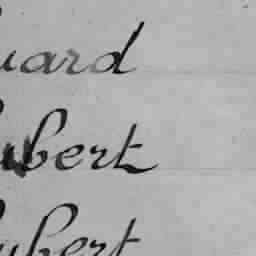 uard
ubert
ubert